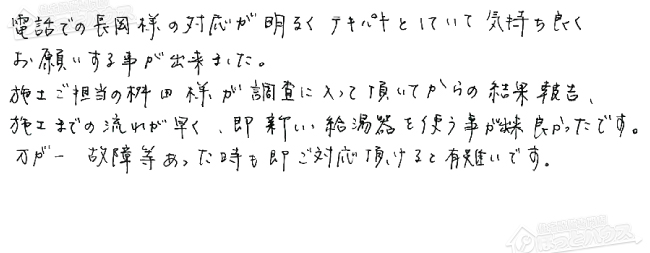 電話での長岡様の対応が明るくテキパキとしていて気持ち良く
お願いする事が出来ました。
施工ご担当の桝田様が調査に入って頂いてからの結果報告、
施工までの流れが早く、即新しい給湯器を使う事が出来良かったです。
万が一故障等あった時も即ご対応頂けると有難いです。